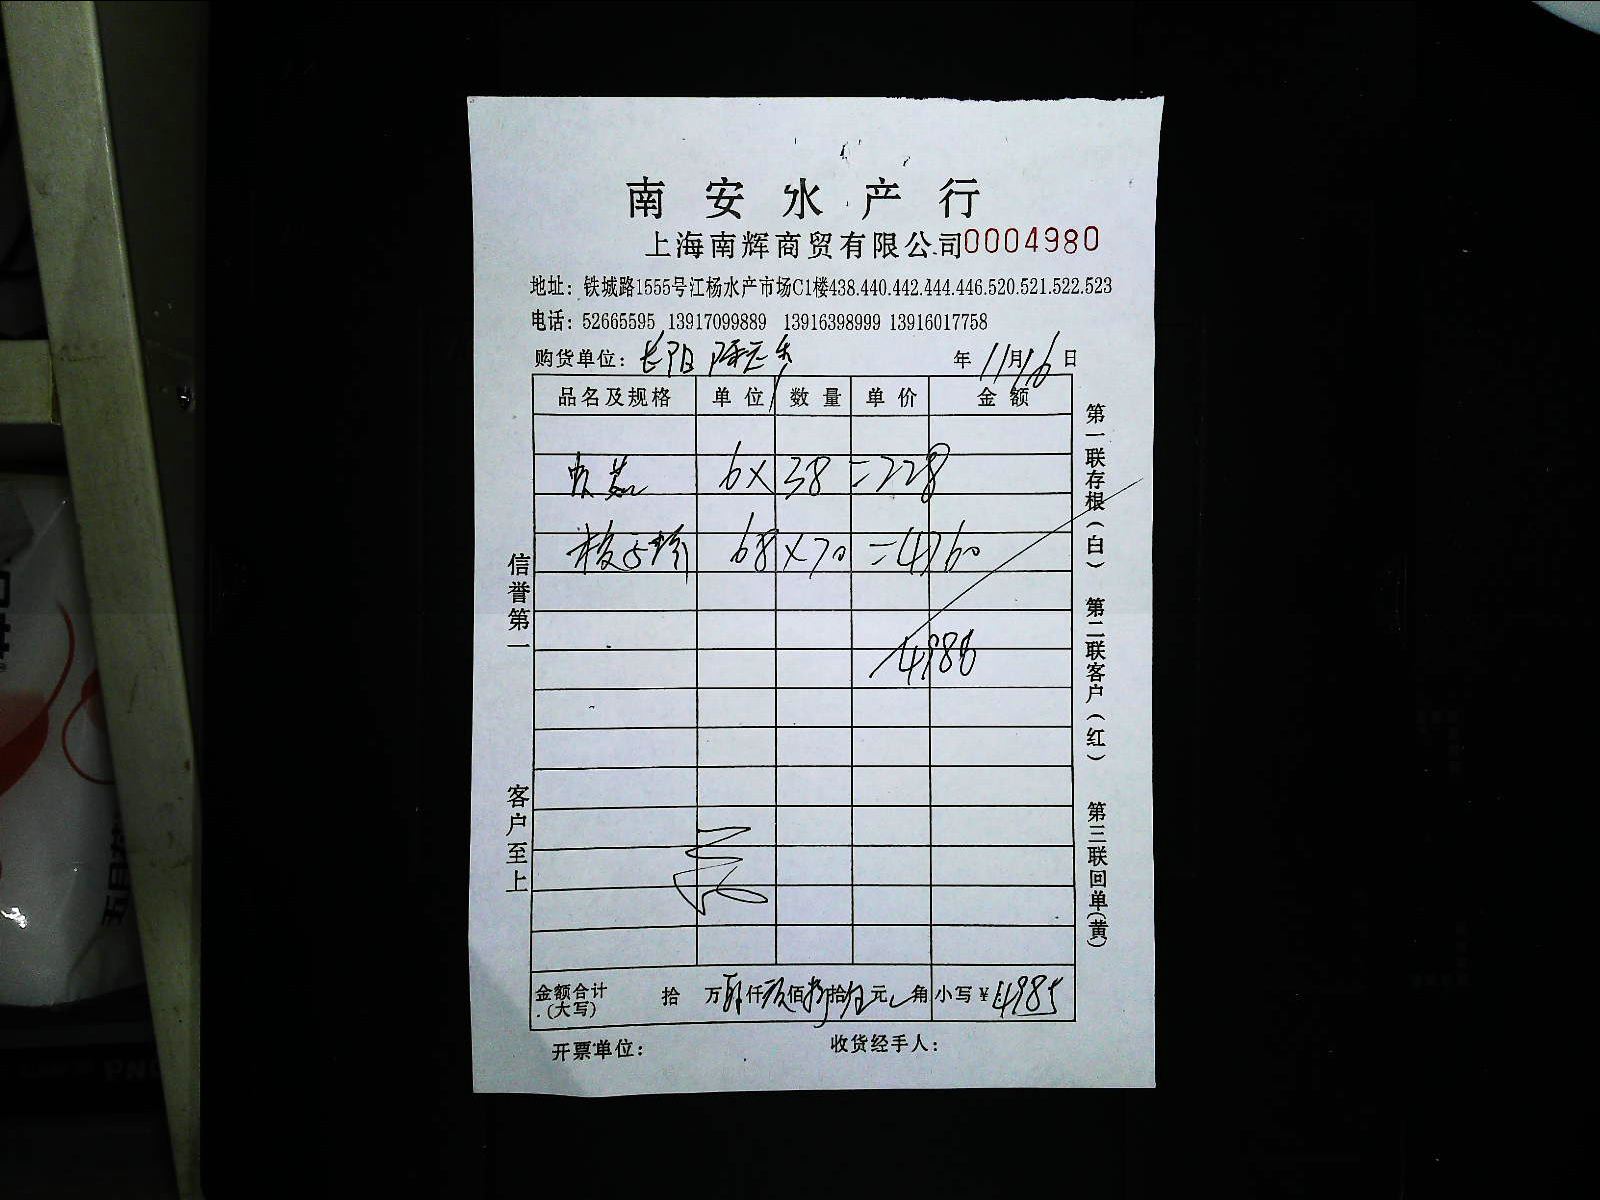 南安水产行
上海南辉商贸有限公司 0004980
地址：铁城路1555号江杨水产市场C1楼438.440.442.444.446.520.521.522.523
电话：52665595 13917099889 13916398999 13916017758
购货单位：长阳 年11月16日
品名及规格 单位 数量 单价 金额
6×38=228
68×70=4760
4988
金额合计(大写) 拾 万 仟 佰 拾 元 角 小写￥4985
开票单位： 收货经手人：
信誉第一
客户至上
第一联存根(白) 第二联客户(红) 第三联回单(黄)